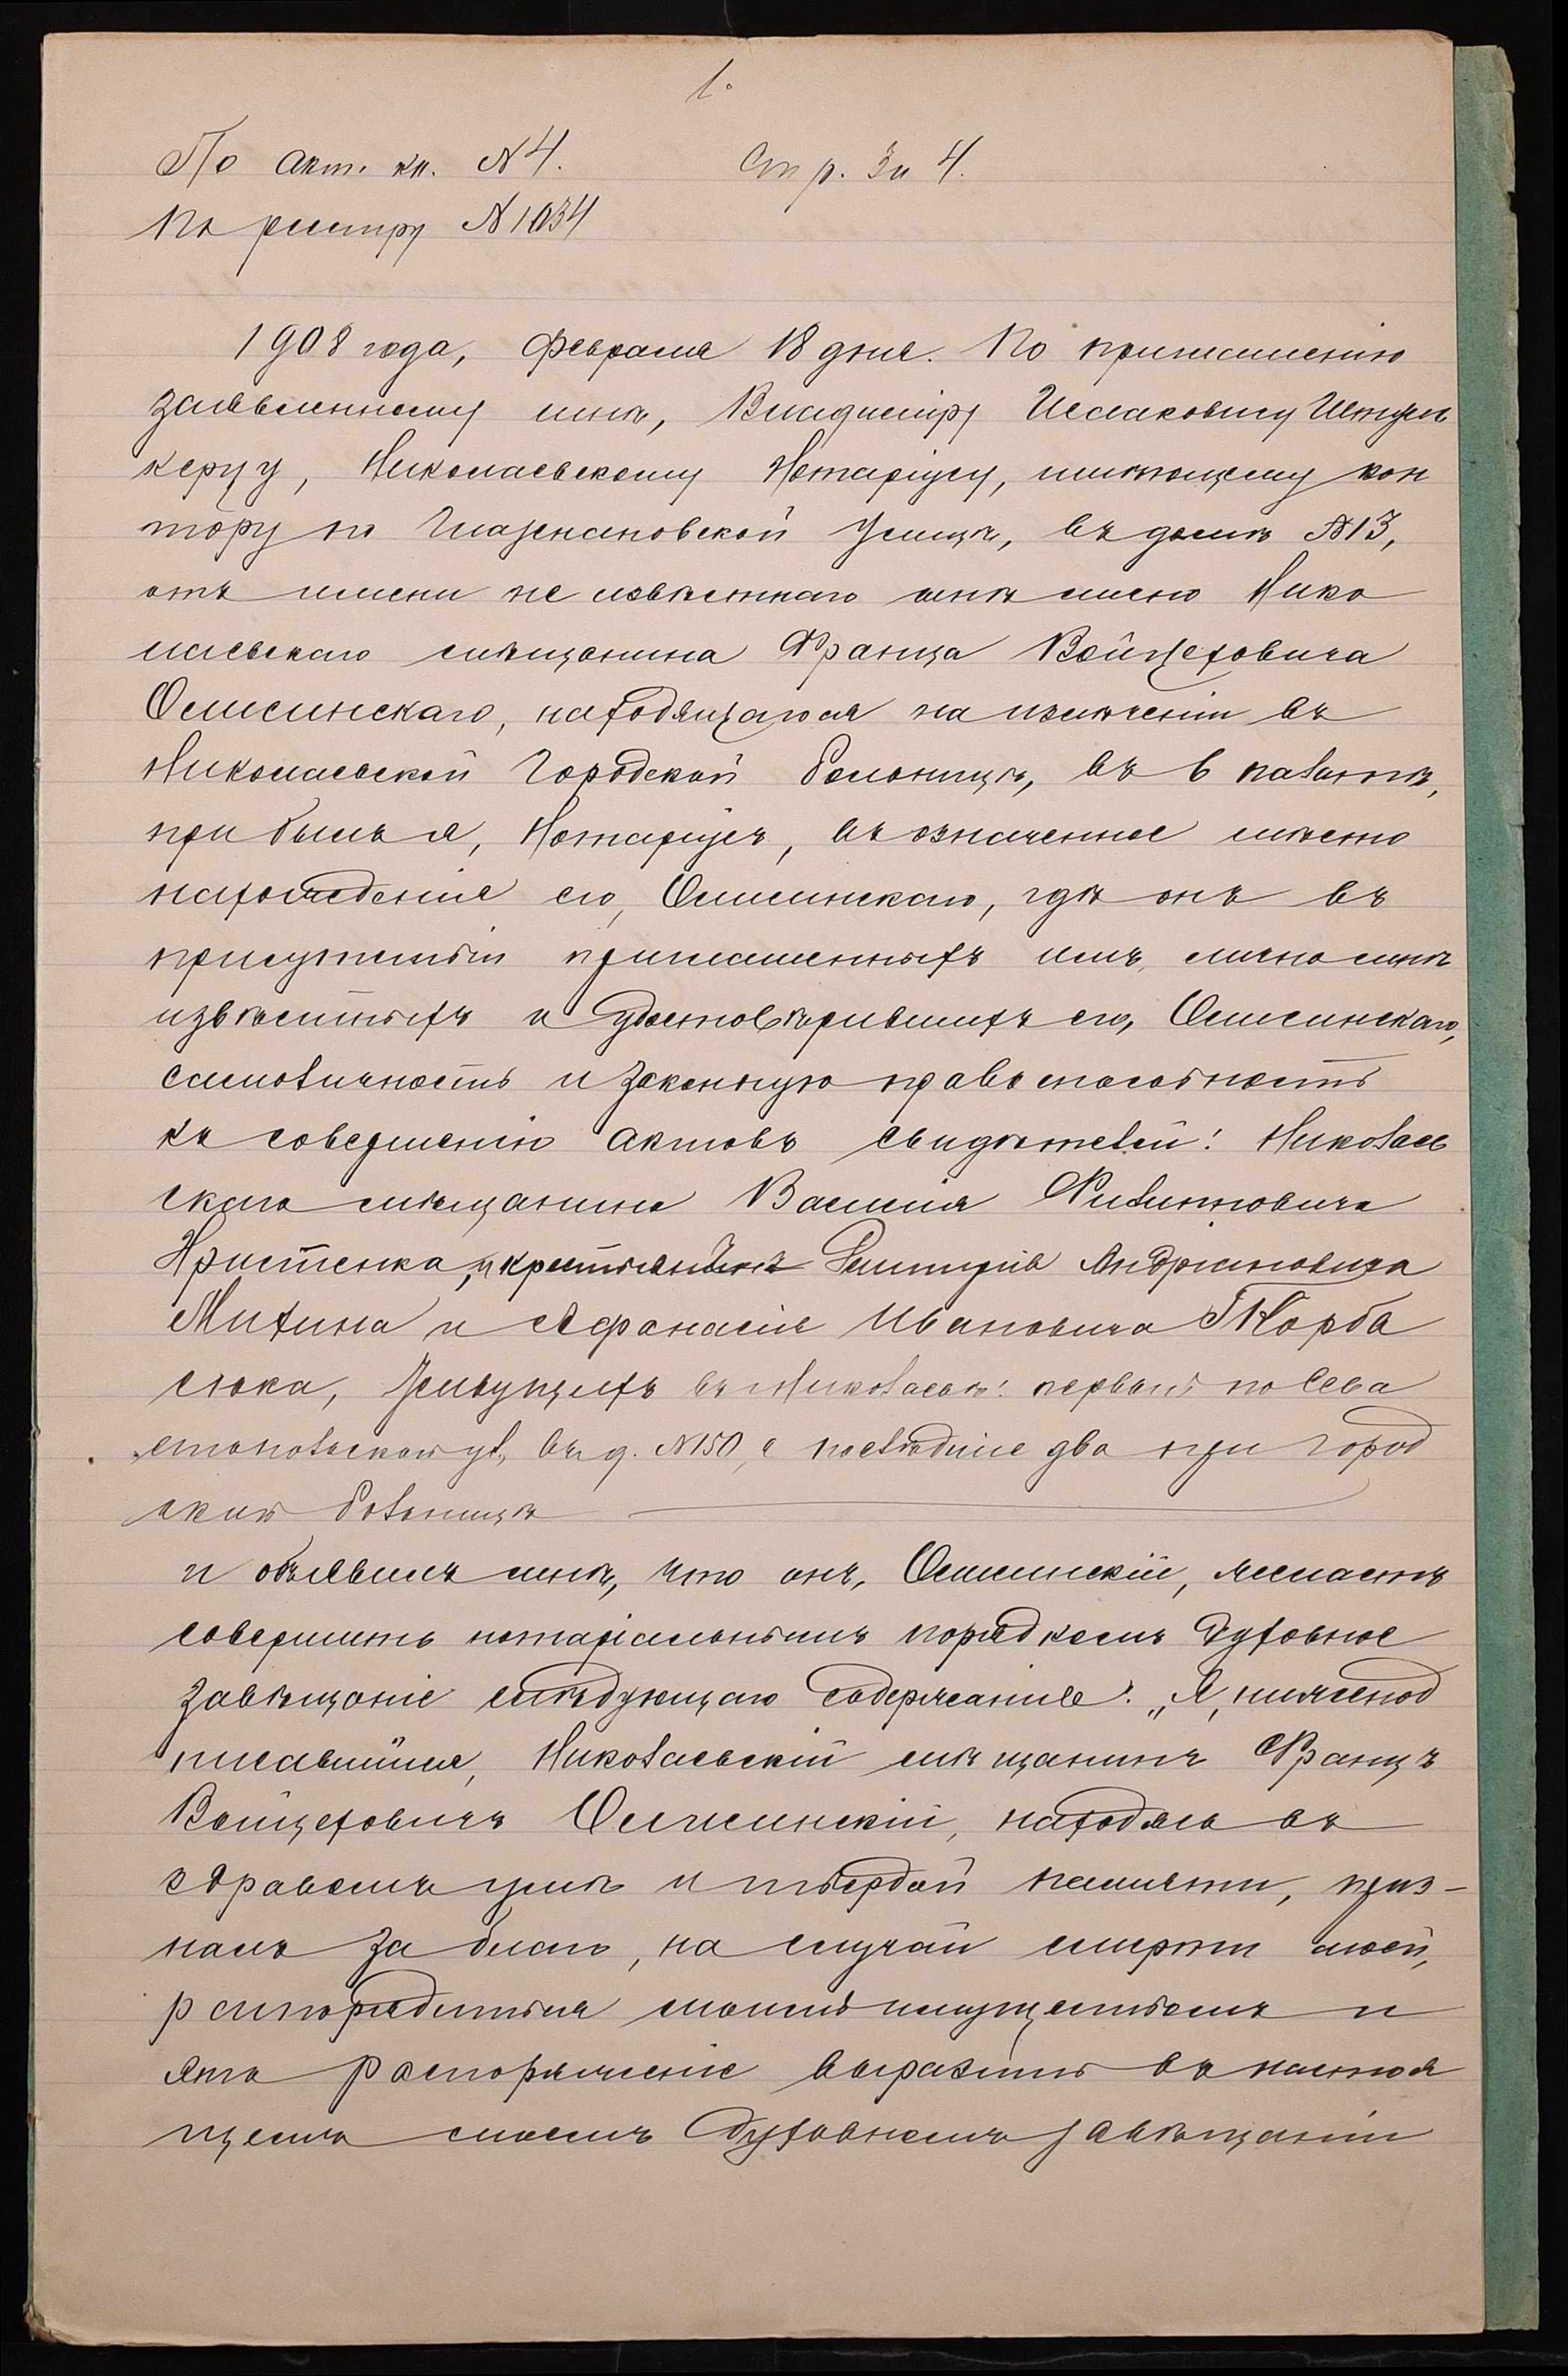 1.
По акт. кн. N 4. Стр. 3 и 4.
По реестру N 1034
1908 года, Февраля 18 дня. По приглашенію
заявленному мнѣ, Владиміру Исааковичу Штуль
керцу, Николаевскому Нотаріусу, имѣющему кон
тору по Глазенаповской улицѣ, въ домѣ N 13,
отъ имени не извѣстнаго мнѣ лично Нико
лаевскаго мѣщанина Франца Войцеховича
Олисинскаго, находящагося на излѣченіи въ
Николаевской Городской больницѣ, въ 6 палатѣ,
прибылъ я, Нотаріусъ, въ означенное мѣсто
нахожденія его, Олисинскаго, гдѣ онъ въ
присутствіи приглашенныхъ имъ, лично мнѣ
извѣстныхъ и удостовѣрившихъ его, Олисинскаго,
самоличность и законную правоспособность
къ совершенію актовъ свидѣтелей: Николаев
скаго мѣщанина Василія Филипповича
Христенка, и крестьянъ Андріановича
Митина и Афанасія Ивановича Корба
сюка, живущихъ въ Николаевѣ: первый по Сева
стопольской ул., въ д. N 150, а послѣдніе два при город
ской больницѣ
и объявилъ мнѣ, что онъ, Олисинскій, желаетъ
совершить нотаріальнымъ порядкомъ духовное
завѣщаніе слѣдующаго содержанія: „Я, нижепод
писавшійся, Николаевскій мѣщанинъ Францъ
Войцеховичъ Олисинскій, находясь въ
здравомъ умѣ и твердой памяти, приз-
налъ за благо, на случай смерти моей,
распорядиться моимъ имуществомъ и
это распоряженіе выразить въ настоя
щемъ моемъ духовномъ завѣщаніи